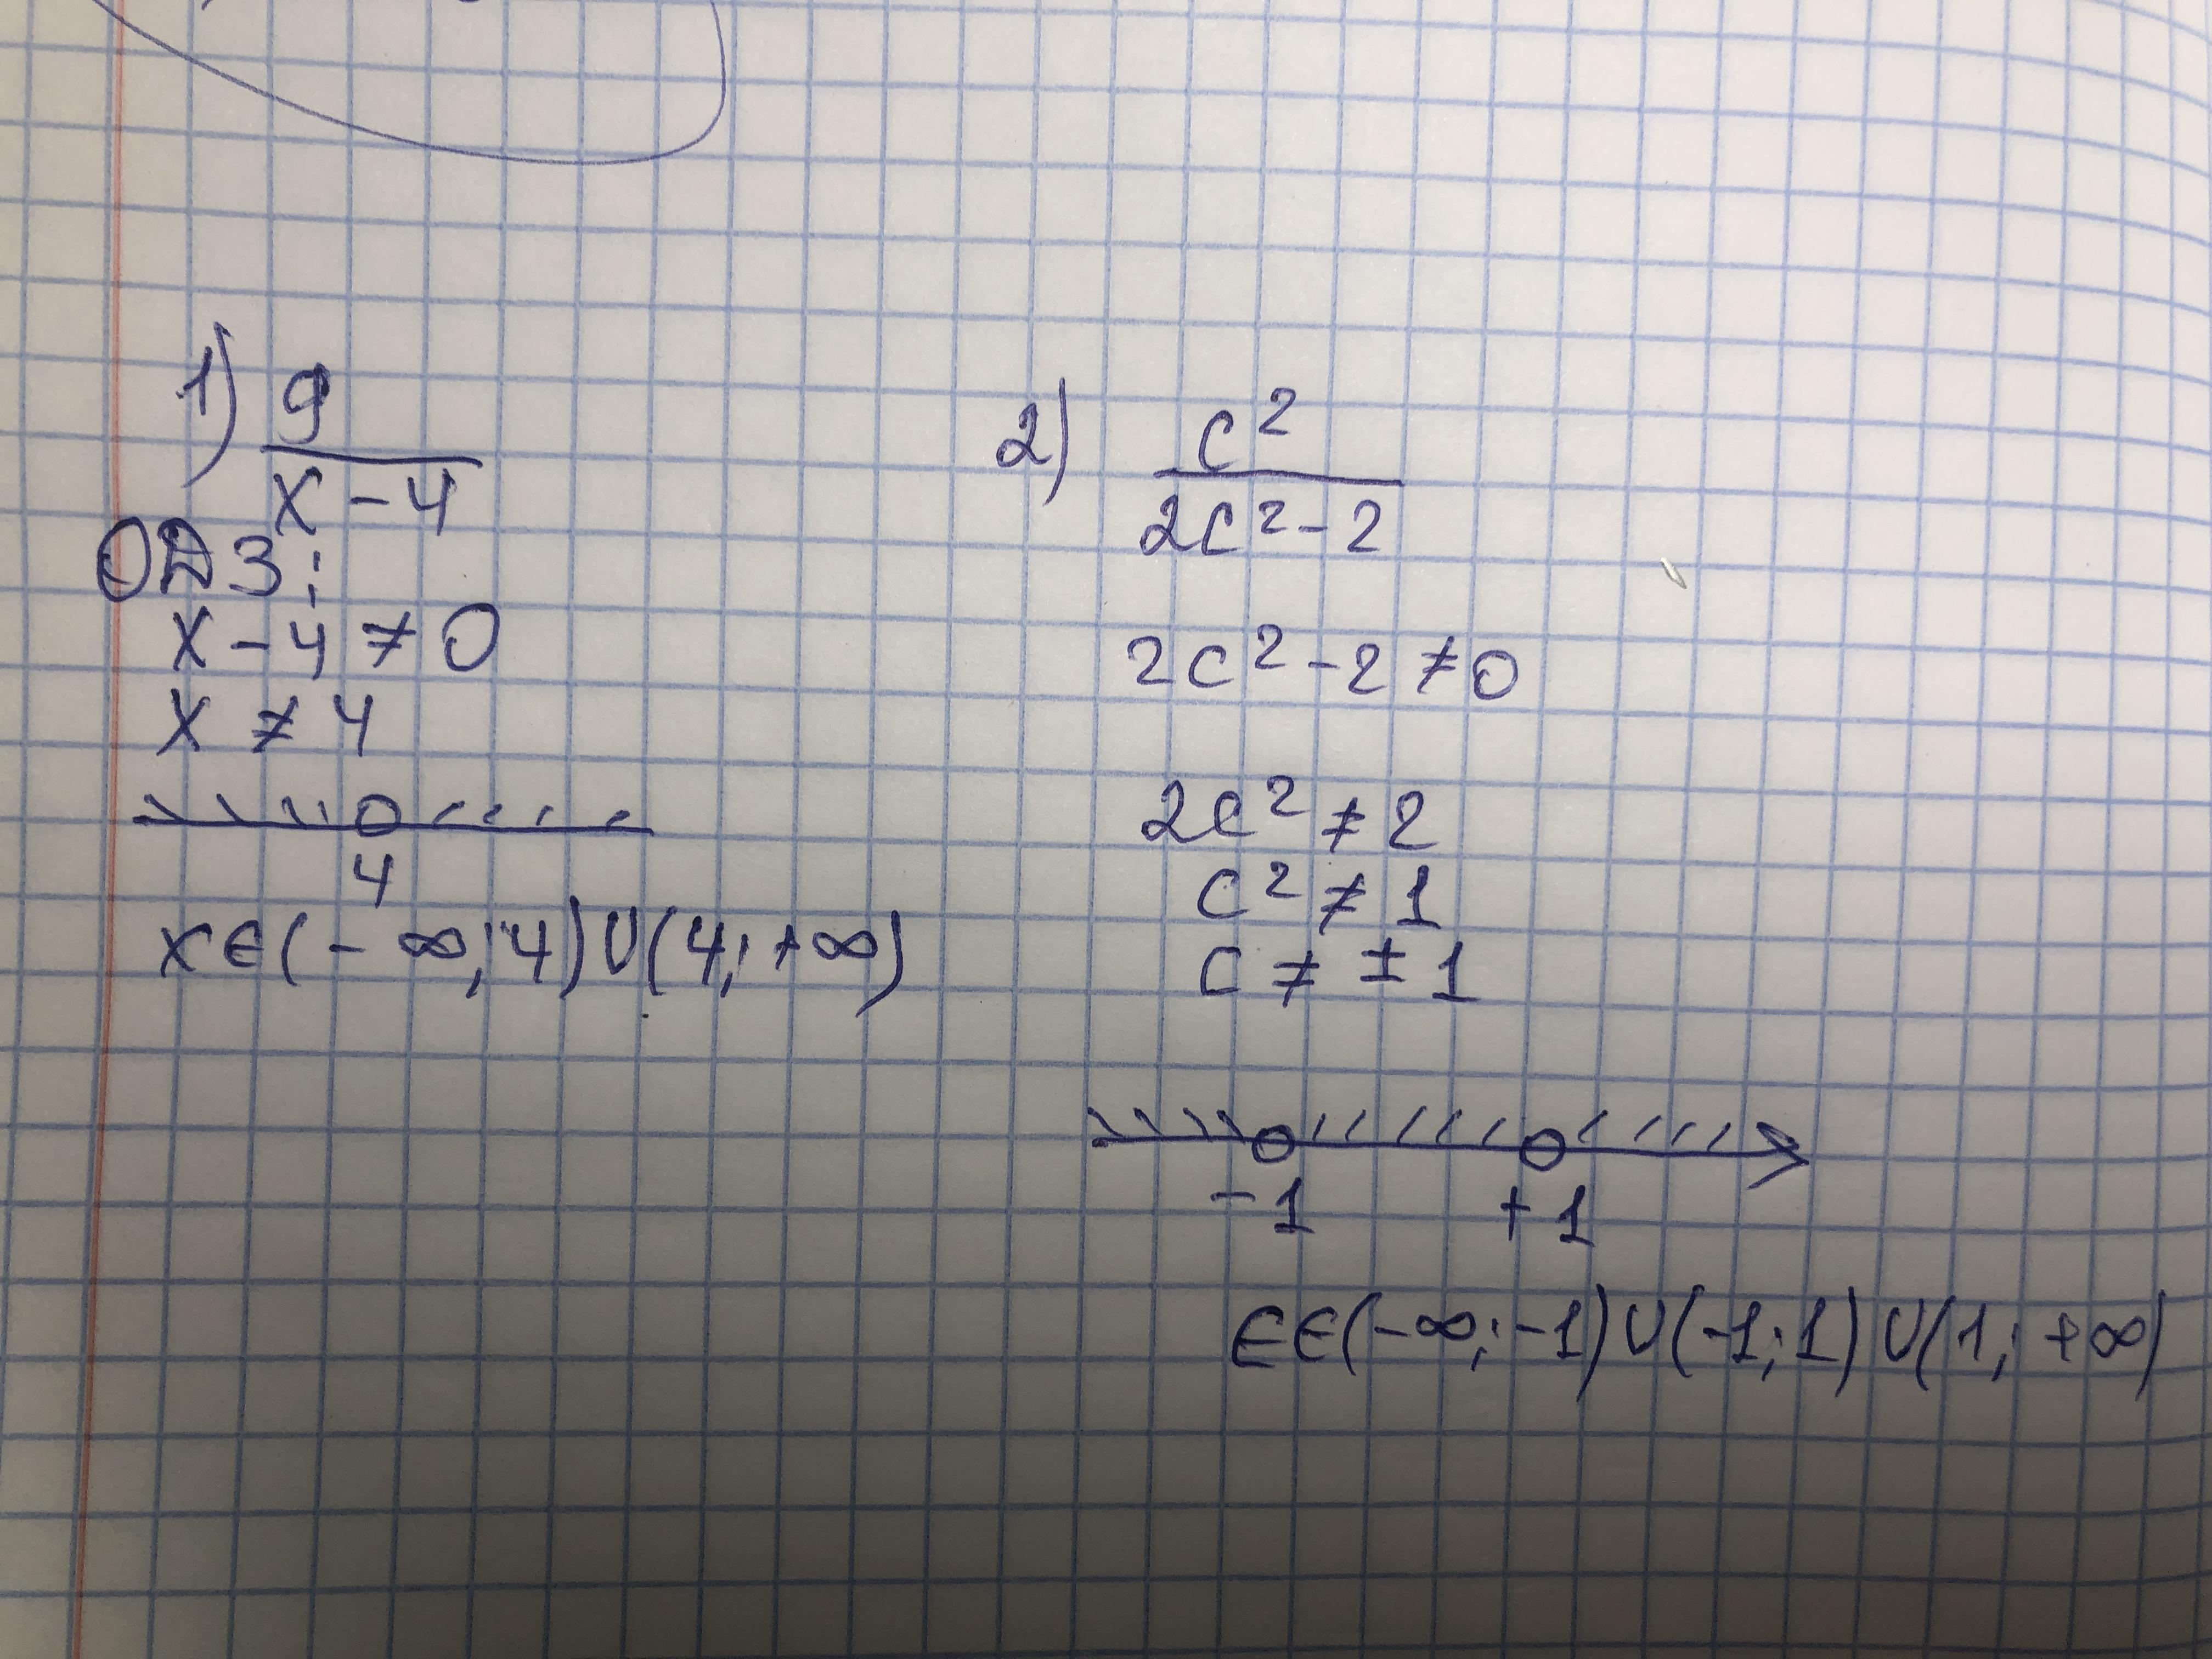 1) 9
x - 4
ОДЗ:
x - 4 ≠ 0
x ≠ 4
4
x ∈ (-∞; 4) ∪ (4; +∞)
2) c²
2c² - 2
2c² - 2 ≠ 0
2c² ≠ 2
c² ≠ 1
c ≠ ± 1
-1 +1
∈ ∈ (-∞; -1) ∪ (-1; 1) ∪ (1; +∞)